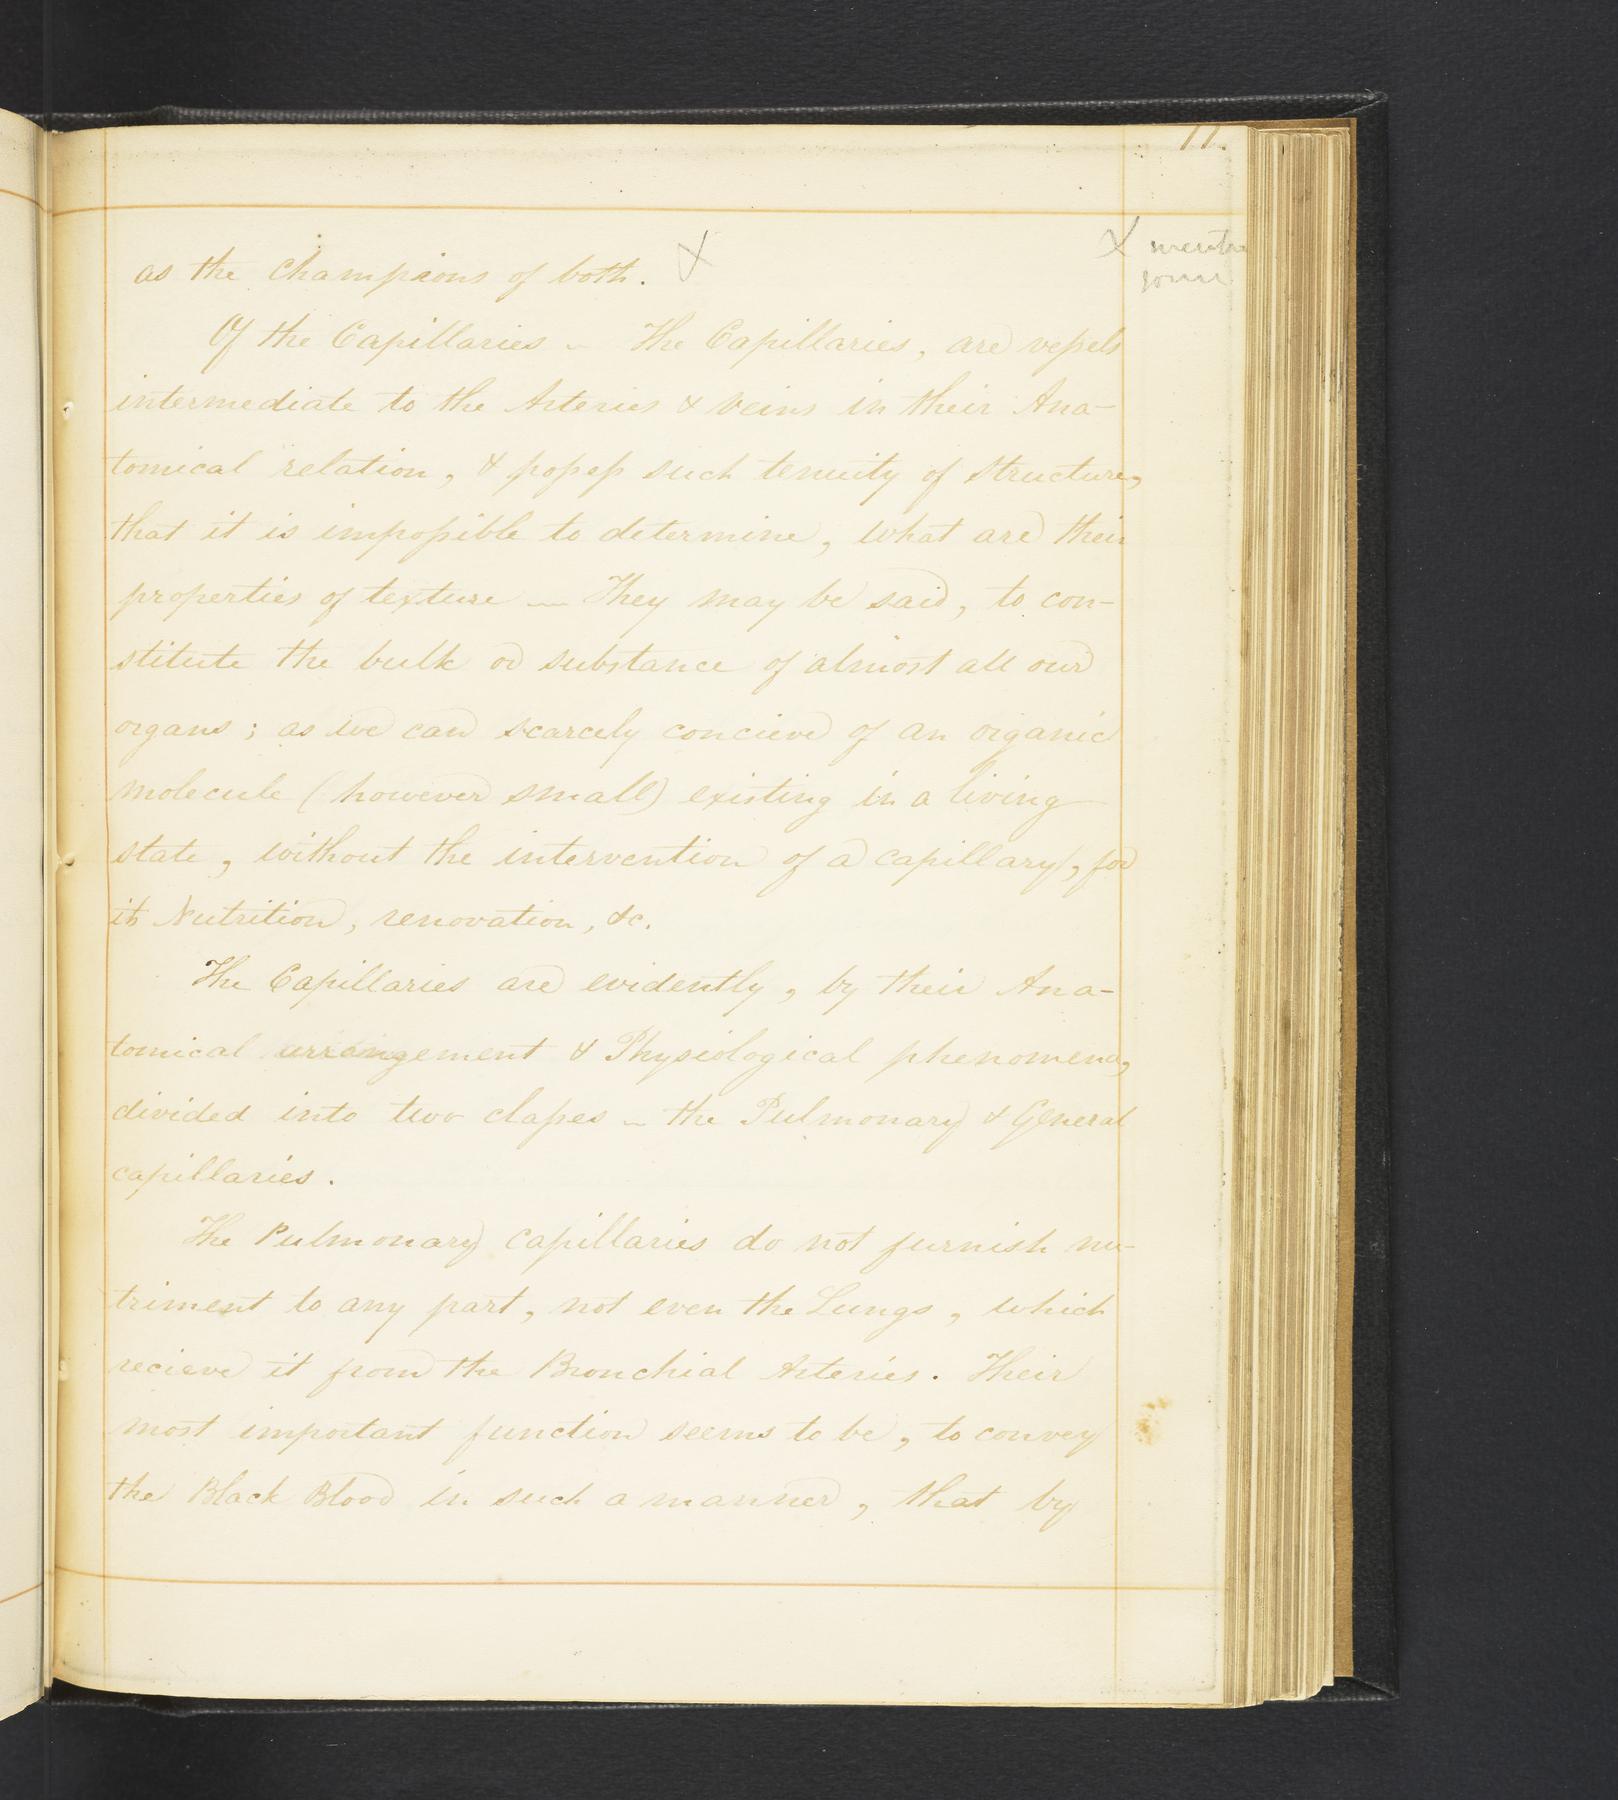 11.
as the champions of both. X
X
Of the Capillaries - The Capillaries, are vessels
intermediate to the Arteries & veins in their Ana-
tomical relation, & possess such tenuity of structure,
that it is impossible to determine, what are their
properties of texture — They may be said, to con-
stitute the bulk or substance of almost all our
organs; as we can scarcely concieve of an organic
molecule (however small) existing in a living
state, without the intervention of a capillary, for
its Nutrition, renovation, &c.
The Capillaries are evidently, by their Ana-
tomical arrangement & Physiological phenomena,
divided into two classes - the Pulmonary & General
capillaries.
The Pulmonary capillaries do not furnish nu-
triment to any part, not even the Lungs, which
recieve it from the Bronchial Arteries. Their
most important function seems to be, to convey
the Black Blood in such a manner, that by